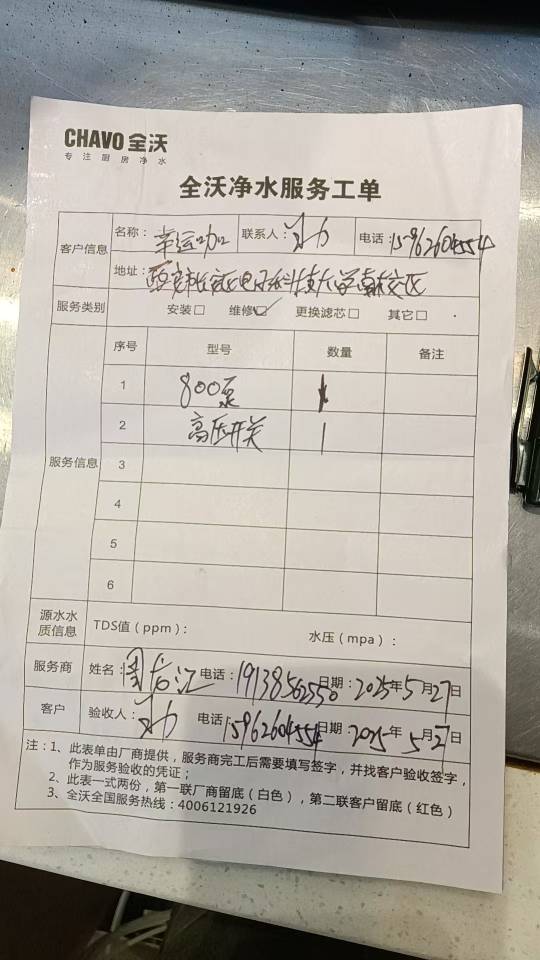 CHAVO 全沃
专注厨房净水
全沃净水服务工单
客户信息 名称：幸运咖 联系人： 电话：15962604554
地址：西安市长安区电子科技大学南校区
服务类别 安装□ 维修☑ 更换滤芯□ 其它□
服务信息 序号 型号 数量 备注
1 800泵 1
2 高压开关 1
3
4
5
6
源水水质信息 TDS值（ppm）： 水压（mpa）：
服务商 姓名：周 江 电话：19138562550 日期：2025年5月27日
客户 验收人： 电话：15962604554 日期：2025年5月27日
注：1、此表单由厂商提供，服务商完工后需要填写签字，并找客户验收签字，
作为服务验收的凭证；
2、此表一式两份，第一联厂商留底（白色），第二联客户留底（红色）
3、全沃全国服务热线：4006121926